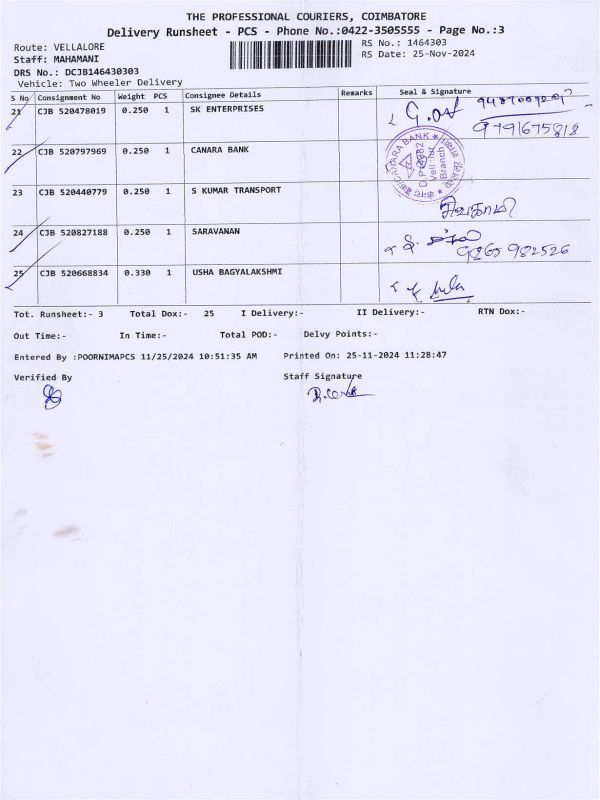 THE PROFESSIONAL COURIERS, COIMBATORE
Delivery Runsheet - PCS - Phone No.:0422-3505555 - Page No.:3
Route: VELLALORE
Staff: MAHAMANI
DRS No.: DCJB146430303
Vehicle: Two Wheeler Delivery
RS No.: 1464303
RS Date: 25-Nov-2024
S No Consignment No Weight PCS Consignee Details Remarks Seal & Signature
21 CJB 520478019 0.250 1 SK ENTERPRISES
9791675818
22 CJB 520797969 0.250 1 CANARA BANK
CANARA BANK
Branch
23 CJB 520440779 0.250 1 S KUMAR TRANSPORT
சிவகாமி
24 CJB 520827188 0.250 1 SARAVANAN
9865 982526
25 CJB 520668834 0.330 1 USHA BAGYALAKSHMI
Tot. Runsheet:- 3 Total Dox:- 25 I Delivery:- II Delivery:- RTN Dox:-
Out Time:- In Time:- Total POD:- Delvy Points:-
Entered By :POORNIMAPCS 11/25/2024 10:51:35 AM Printed On: 25-11-2024 11:28:47
Verified By Staff Signature